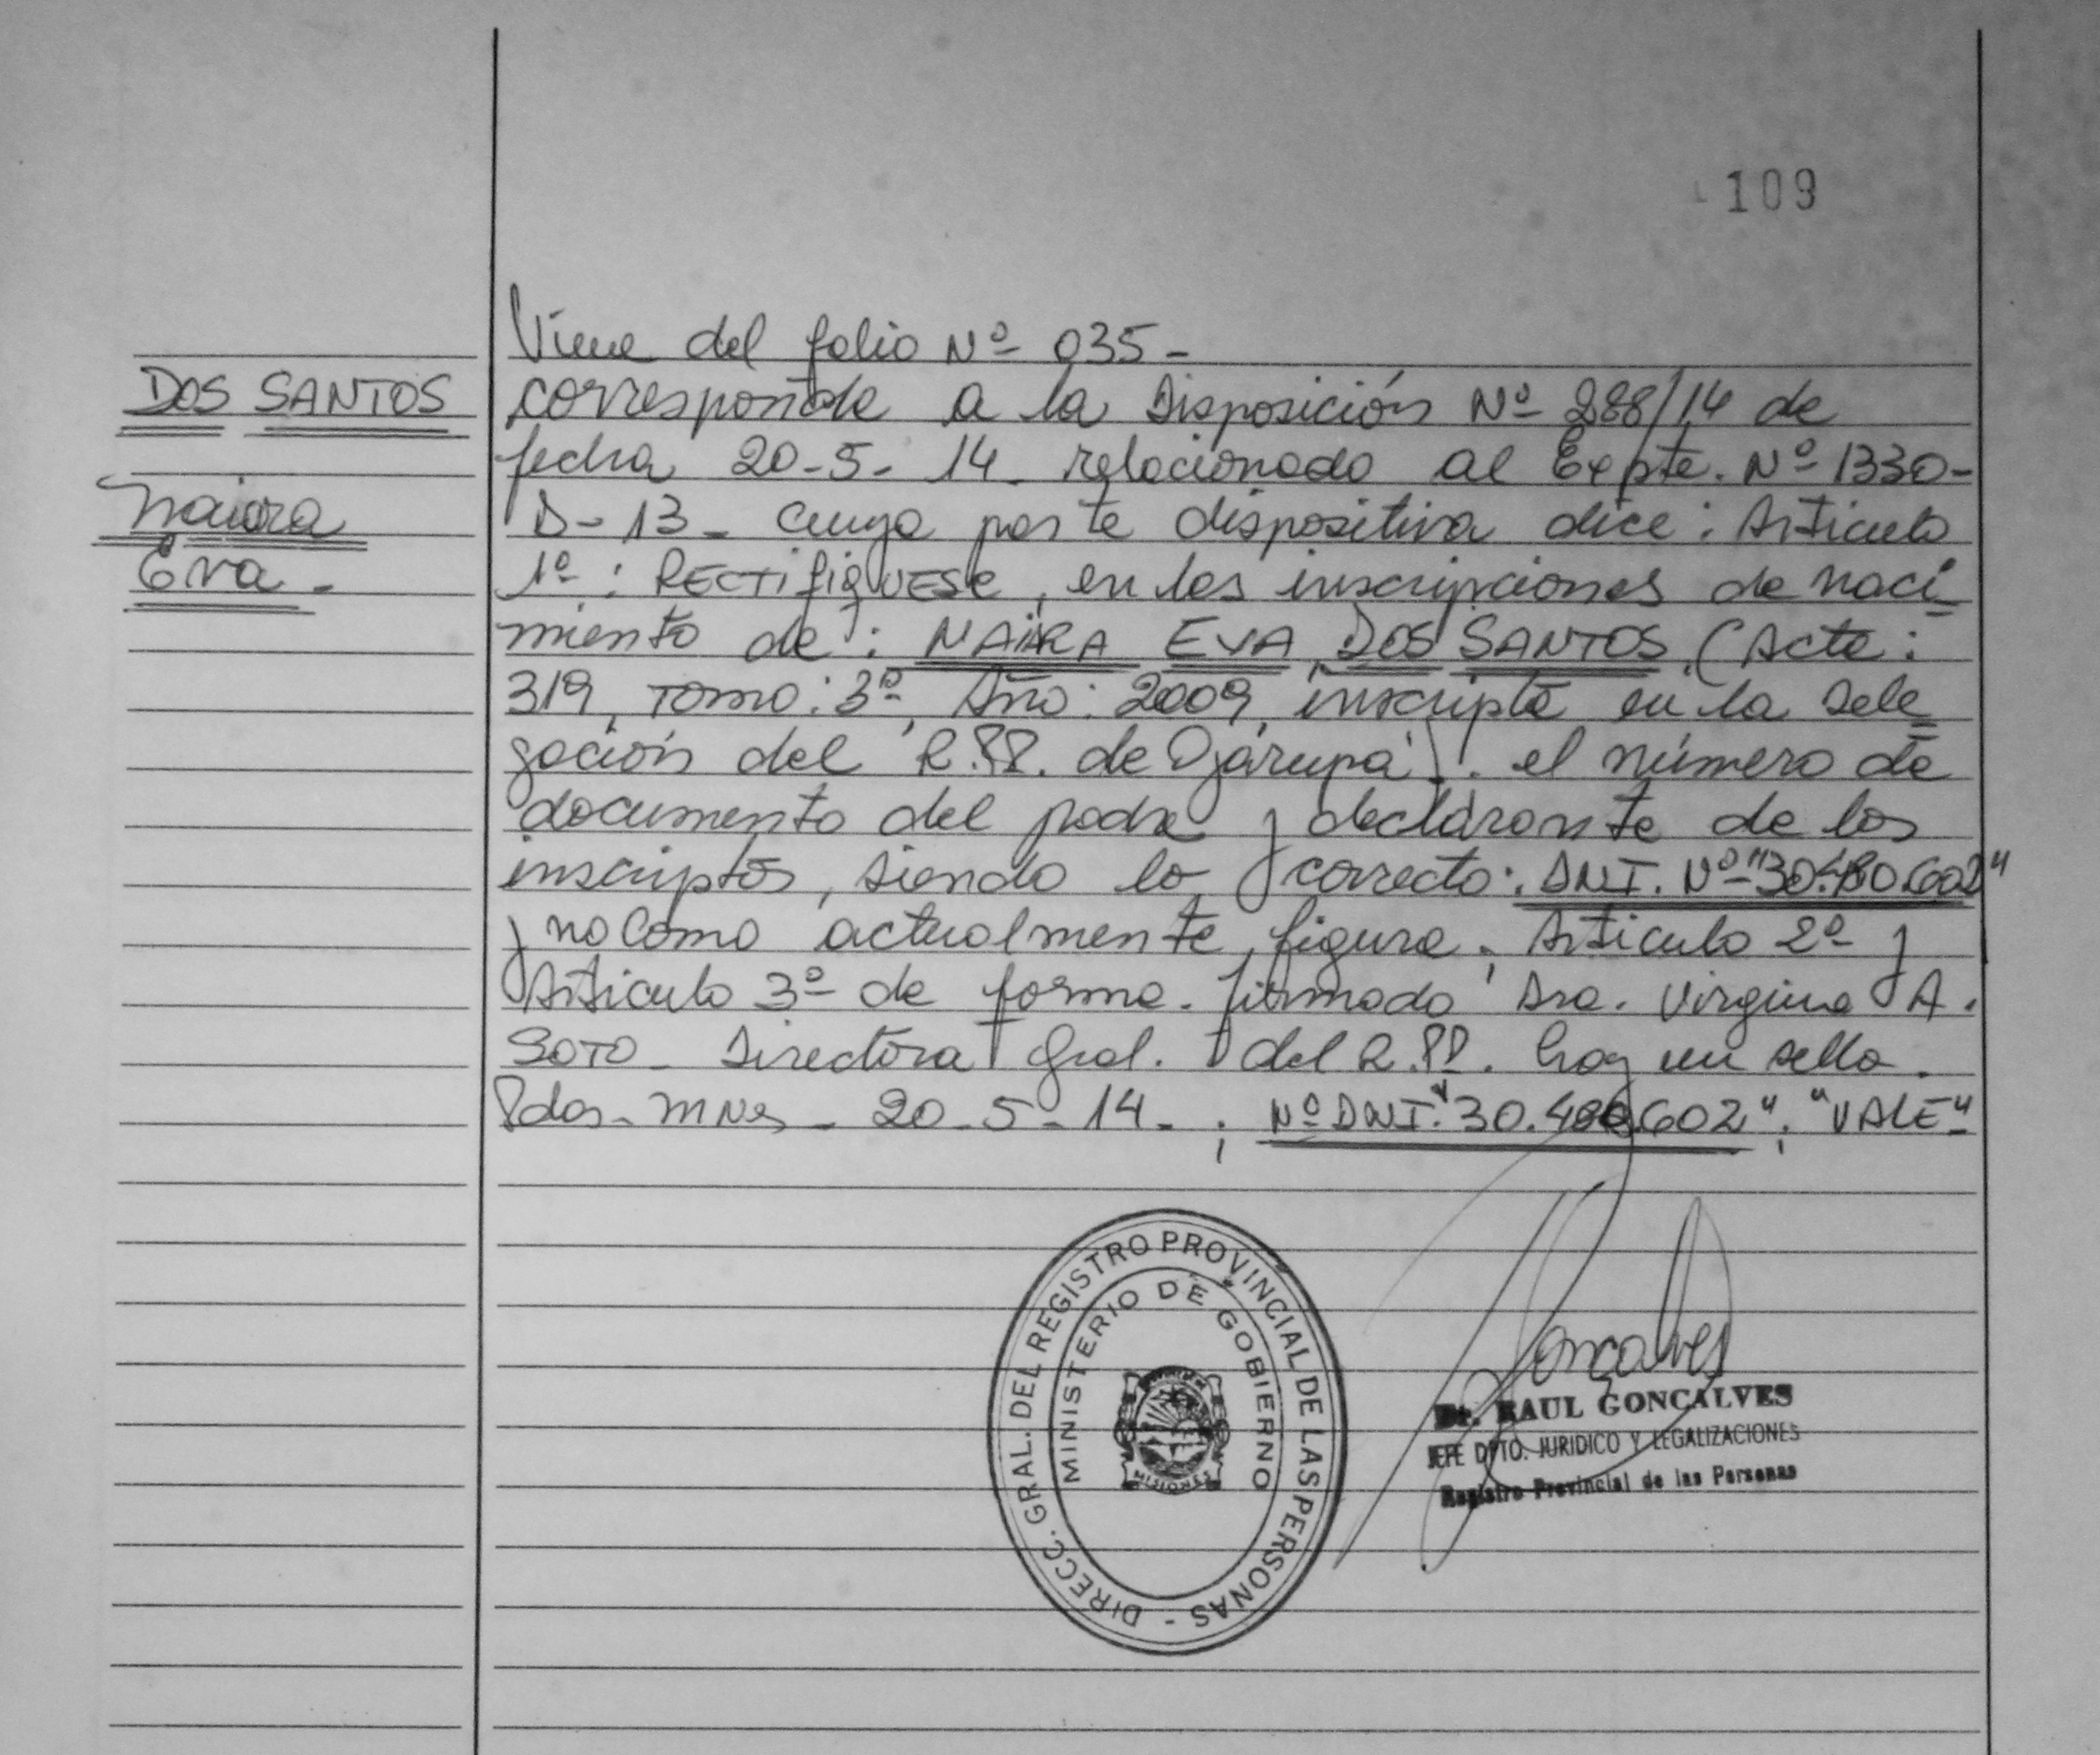 109
Viene del folio Nº 035-
DOS SANTOS
Naiara
Eva -
corresponde a la Disposición Nº 288/14 de
fecha 20-5-14 relacionado al Expte. Nº 1330-
D-13- cuya parte dispositiva dice: Articulo
1º: RECTIFIQUESE, en las inscripciones de naci-
miento de: EVA DOS SANTOS (Acta:
319, Tomo: 3º, Año: 2009, inscripta en la Dele-
gación del R.PP. de ) el número de
documento del padre y declarante de los
inscriptos, siendo lo correcto: DNI. Nº "30.480.602"
y no como actualmente figura. Articulo 2º y
Articulo 3º de forma. Firmado Dra. Virginia A.
SOTO- Directora Gral. del R.PP. hay un sello.
Pdas- Mnes - 20-5-14- ; Nº DNI. "30.480.602"; "VALE"
DIRECC. GRAL. DEL REGISTRO PROVINCIAL DE LAS PERSONAS -
MINISTERIO DE GOBIERNO
MISIONES
Goncalves
Dr. RAUL GONCALVES
JEFE DPTO. JURIDICO Y LEGALIZACIONES
Registro Provincial de las Personas